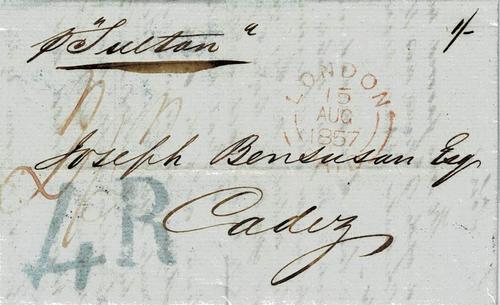 p "Sultan"
1/-
LONDON
15
AUG
1857
Joseph Bensusan Esq
Cadiz
4R